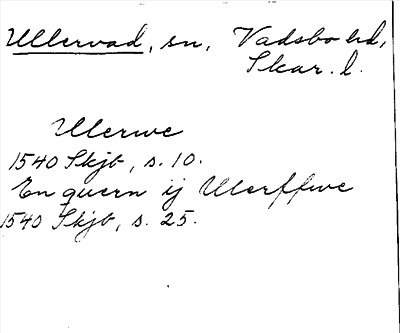 Ullervad, sn, Vadsbo hd,
Skar. l.
Ulerwe
1540 Skjb, s. 10.
En quern ij Ulerffwe
1540 Skjb, s. 25.